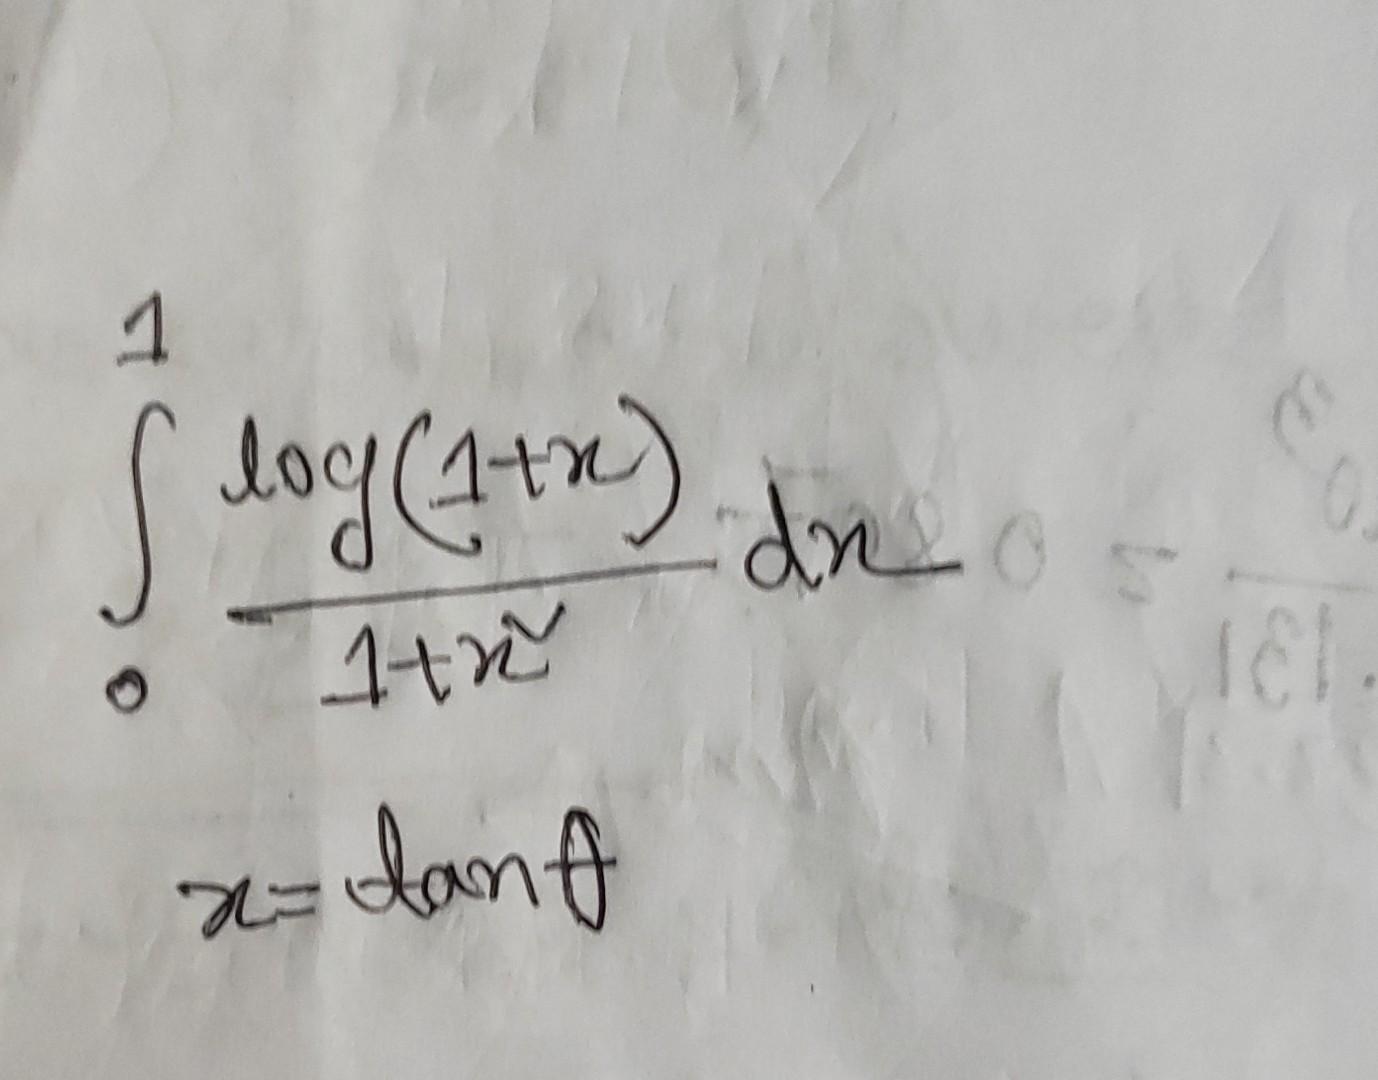 ∫₀¹ log(1+x)/(1+x²) dx
x = tanθ